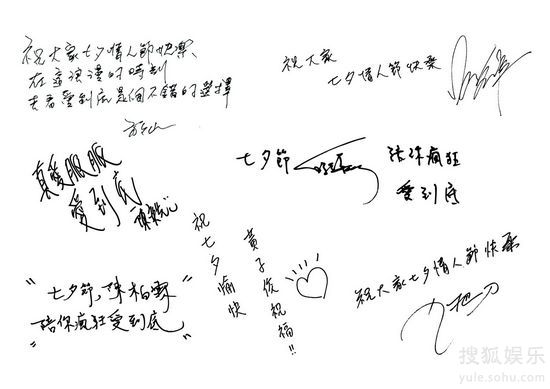 祝大家七夕情人節快樂、
在這浪漫的時刻
去看愛到底是個不錯的選擇
方文山
祝大家
七夕情人節快樂
真愛服服
愛到底
七夕節
瘋狂
愛到底
黃子佼祝福!!
祝七夕愉快
"七夕節,陳柏霖
陪你瘋狂愛到底"
祝大家七夕情人節快樂
九把刀
搜狐娱乐
yule.sohu.com